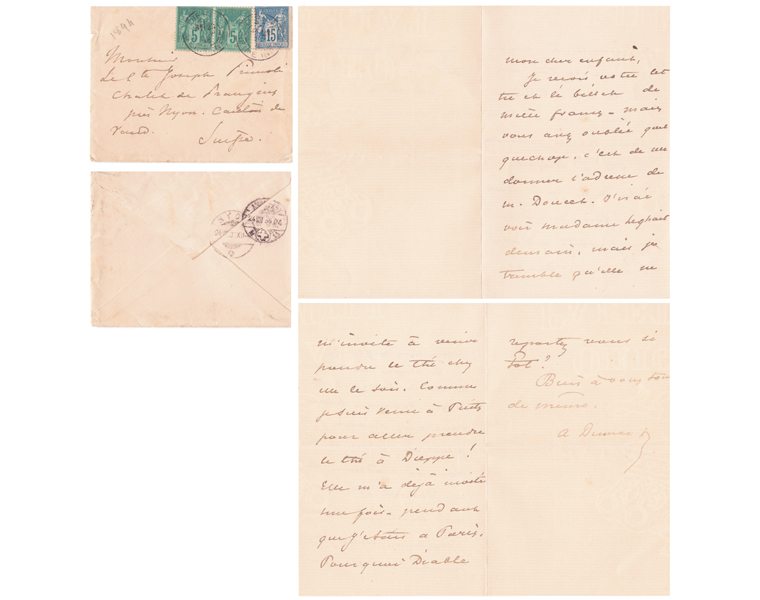 1894
Monsieur
Le Cte Joseph Primoli
Chalet de Prangins
près Nyon. Canton de
Vaud.
Suisse.
5
5
15
mon cher enfant,
Je reçois votre let
tre et le billet de
mille francs - mais
vous avez oublié quel
que chose, c'est de me
donner l'adresse de
M. Doucet. J'irai
voir madame
demain, mais je
tremble qu'elle ne
m'invite à venir
prendre le thé chez
elle le soir. Comme
je suis venu à Puits
pour aller prendre
le thé à Dieppe !
Elle m'a déjà invité
une fois - pendant
que j'étais à Paris.
Pourquoi Diable
repartez vous si
tôt ?
Bien à vous tout
de même.
A Dumas f